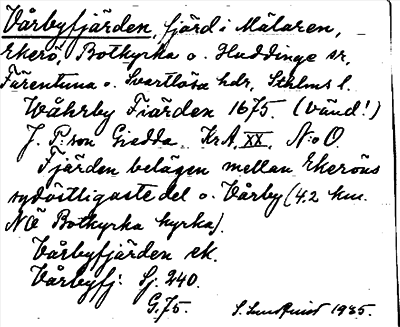 Vårbyfjärden, fjärd i Mälaren,
Ekerö, Botkyrka o. Huddinge sr,
Färentuna o. Svartlösa hdr, Sthlms l.
Wåhrby Fiärden 1675. (Vänd!)
J. P:son Giedda. KrA, XX, N:o 0.
Fjärden belägen mellan Ekeröns
sydöstligaste del o. Vårby (4.2 km.
NÖ Botkyrka kyrka).
Vårbyfjärden ek.
Vårbyfj: Sj. 240.
G.75.
S. Lundkvist 1935.